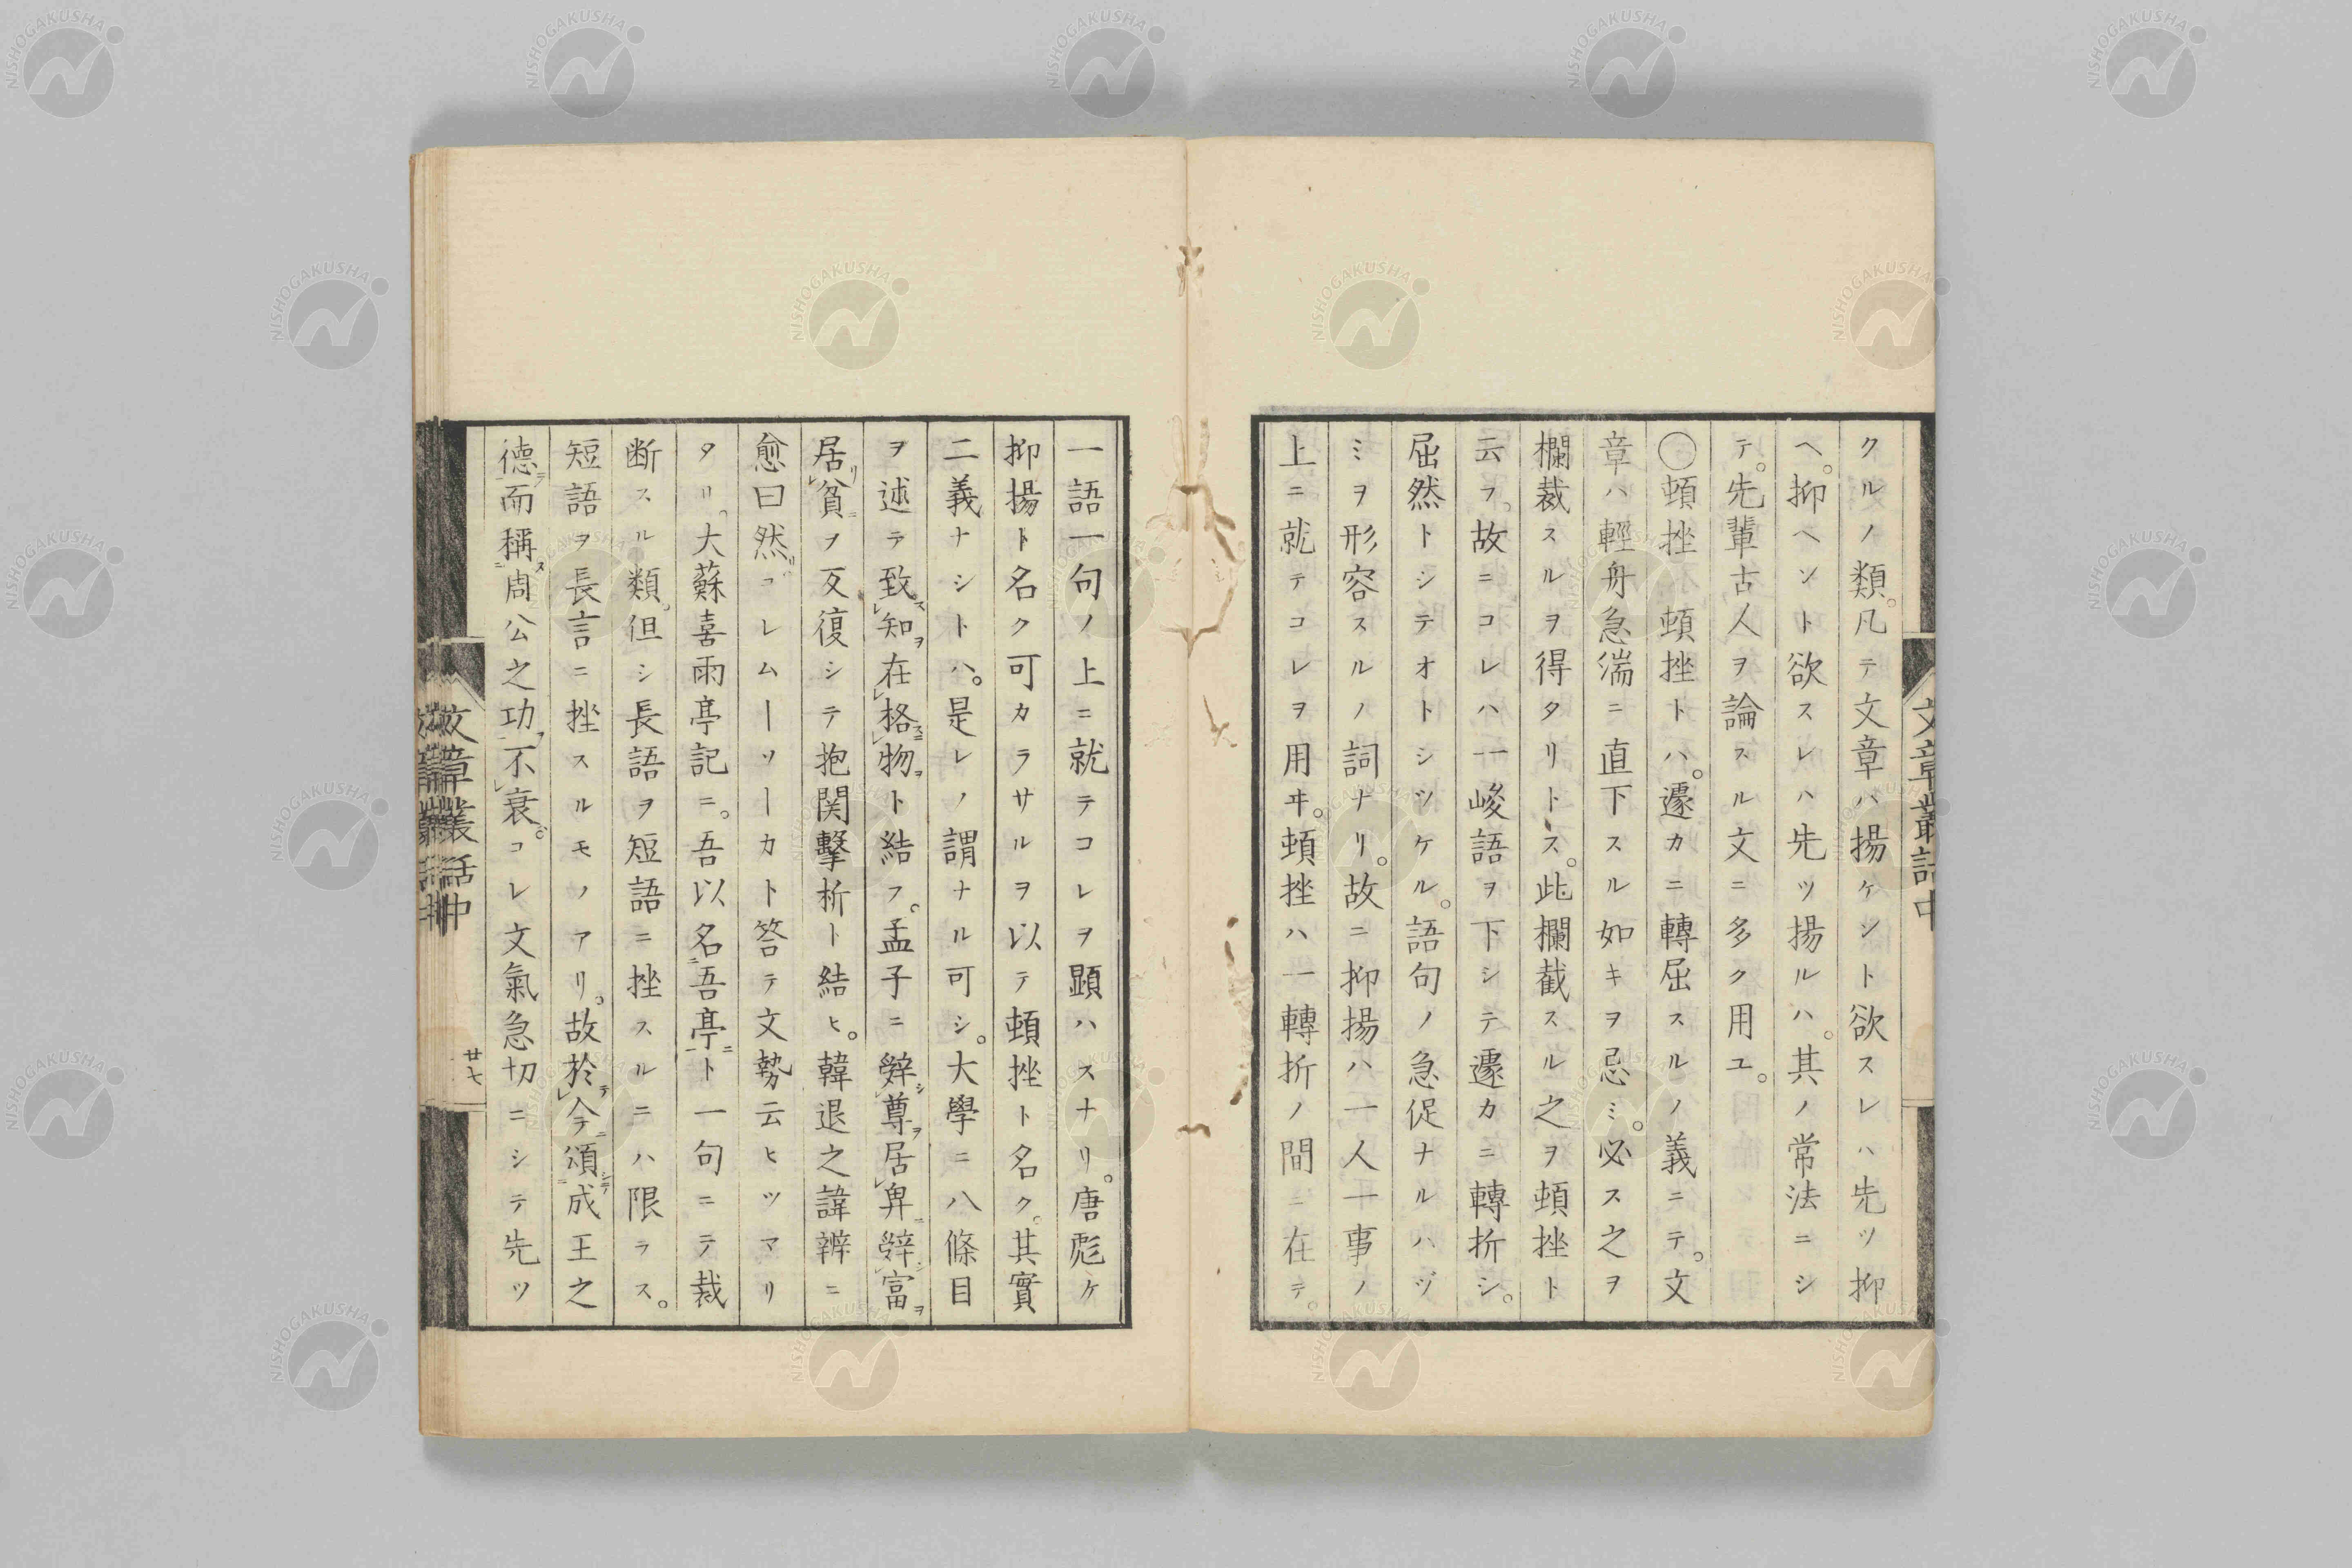 クルノ類。凡テ文章ハ揚ケント欲スレハ先ツ抑
ヘ。抑ヘント欲スレハ先ツ揚ルハ。其ノ常法ニシ
テ。先輩古人ヲ論スル文ニ多ク用ユ。
〇頓挫 頓挫トハ。遽カニ轉屈スルノ義ニテ。文
章ハ輕舟急湍ニ直下スル如キヲ忌ミ。必ス之ヲ
欄裁スルヲ得タリトス。此欄截スル之ヲ頓挫ト
云フ。故ニコレハ一峻語ヲ下シテ遽カニ轉折シ。
屈然トシテオトシツケル。語句ノ急促ナルハヅ
ミヲ形容スルノ詞ナリ。故ニ抑揚ハ一人一事ノ
上ニ就テコレヲ用ヰ。頓挫ハ一轉折ノ間ニ在テ。
一語一句ノ上ニ就テコレヲ顕ハスナリ。唐彪ケ
抑揚ト名ク可カラサルヲ以テ頓挫ト名ク。其實
二義ナシトハ。是レノ謂ナル可シ。大學ニ八條目
ヲ述テ致知在格物ト結フ。孟子ニ辤尊居卑辤富
居貧ヲ反復シテ抱関擊柝ト結ヒ。韓退之諱辨ニ
愈曰然コレムーソーカト答テ文勢云ヒツマリ
タリ。大蘇喜雨亭記ニ。吾以名吾亭ト一句ニテ裁
断スル類。但シ長語ヲ短語ニ挫スルニハ限ラス。
短語ヲ長言ニ挫スルモノアリ。故於今頌成王之
德而稱周公之功不衰。コレ文氣急切ニシテ先ツ
文章叢話中
廿七